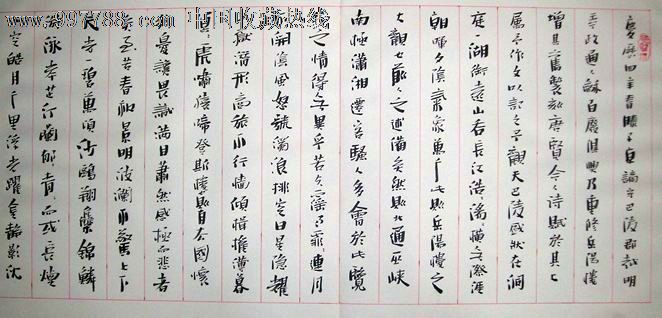 www.997788.com 中国收藏热线
慶歷四年春滕子京謫守巴陵郡越明
年政通人和百廢俱興乃重修岳陽樓
增其舊製刻唐賢今人詩賦於其上
屬予作文以記之予觀夫巴陵勝狀在洞
庭一湖銜遠山吞長江浩浩湯湯橫無際涯
朝暉夕陰氣象萬千此則岳陽樓之
大觀也前人之述備矣然則北通巫峽
南極瀟湘遷客騷人多會於此覽
物之情得無異乎若夫霪雨霏霏連月
不開陰風怒號濁浪排空日星隱耀
山嶽潛形商旅不行檣傾楫摧薄暮
冥冥虎嘯猿啼登斯樓則有去國懷
鄉憂讒畏譏滿目蕭然感極而悲者
矣至若春和景明波瀾不驚上下
天光一碧萬頃沙鷗翔集錦鱗
游泳岸芷汀蘭郁郁青青而或長煙
一空皓月千里浮光躍金靜影沈